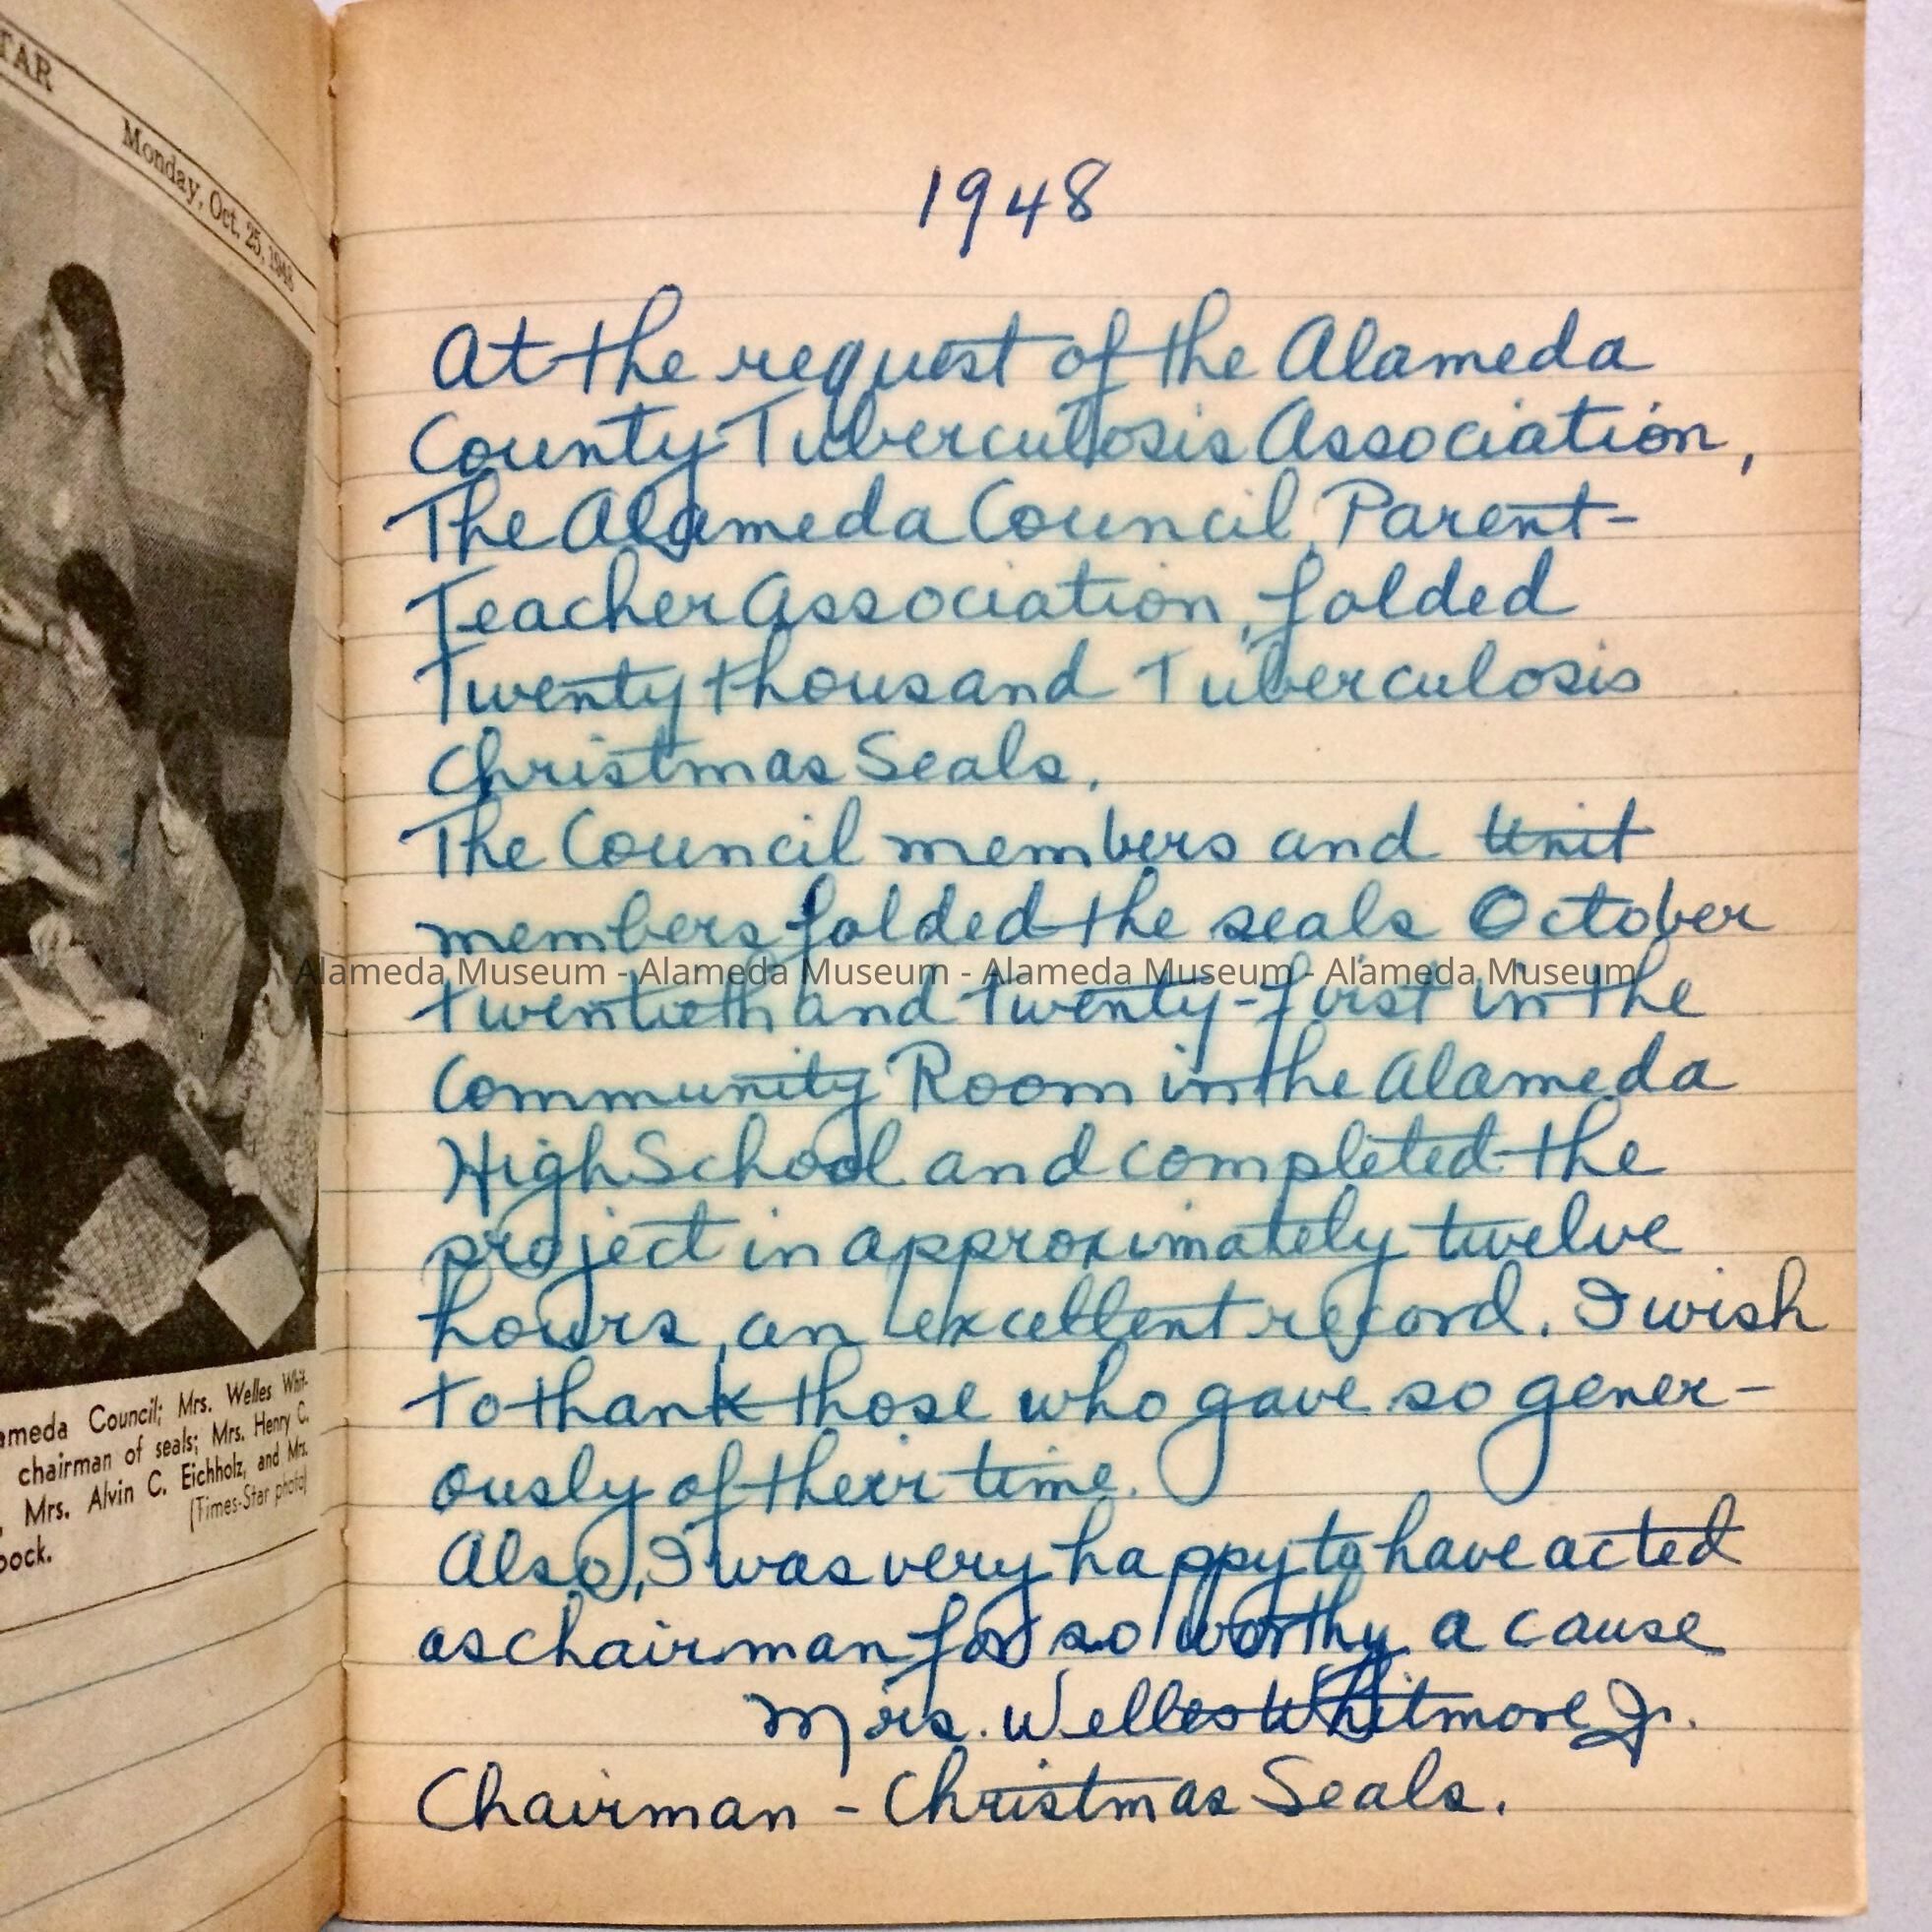 TAR
Monday, Oct. 25, 1948
ameda Council; Mrs. Welles Whit-
chairman of seals; Mrs. Henry C.
, Mrs. Alvin C. Eichholz, and Mrs.
(Times-Star photo)
bock.
1948
At the request of the Alameda
County Tuberculosis Association,
The Alameda Council, Parent-
Teacher Association, folded
Twenty thousand Tuberculosis
Christmas Seals.
The Council members and Unit
members folded the seals October
twentieth and twenty-first in the
Community Room in the Alameda
High School and completed the
project in approximately twelve
hours, an excellent record. I wish
to thank those who gave so gener-
ously of their time.
Also, I was very happy to have acted
as chairman for so worthy a cause
Mrs. Welles Whitmore Jr.
Chairman - Christmas Seals.
Alameda Museum - Alameda Museum - Alameda Museum - Alameda Museum